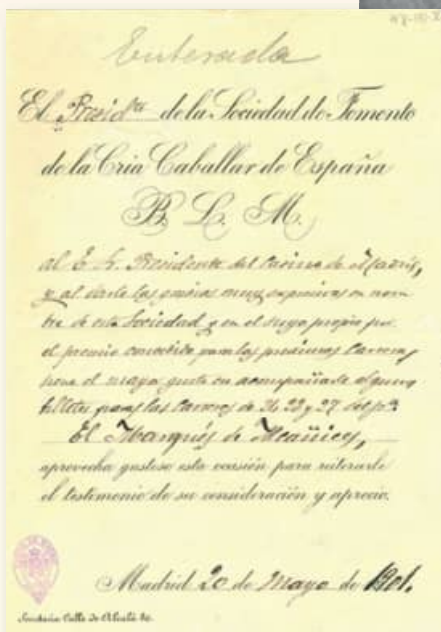 Enterada
El Presid.te de la Sociedad de Fomento
de la Cria Caballar de España
B. L. M.
al E. S. Presidente del Casino de Madrid,
y al darle las gracias muy expresivas en nom
bre de esta Sociedad y en el suyo propio por
el premio concedido para las próximas Carreras,
tiene el mayor gusto en acompañarle algunos
billetes para las Carreras de 23 y 27 del
El Marqués de
aprovecha gustoso esta ocasión para reiterarle
el testimonio de su consideración y aprecio.
Madrid 20 de Mayo de 1901.
Secretaría Calle de Alcalá